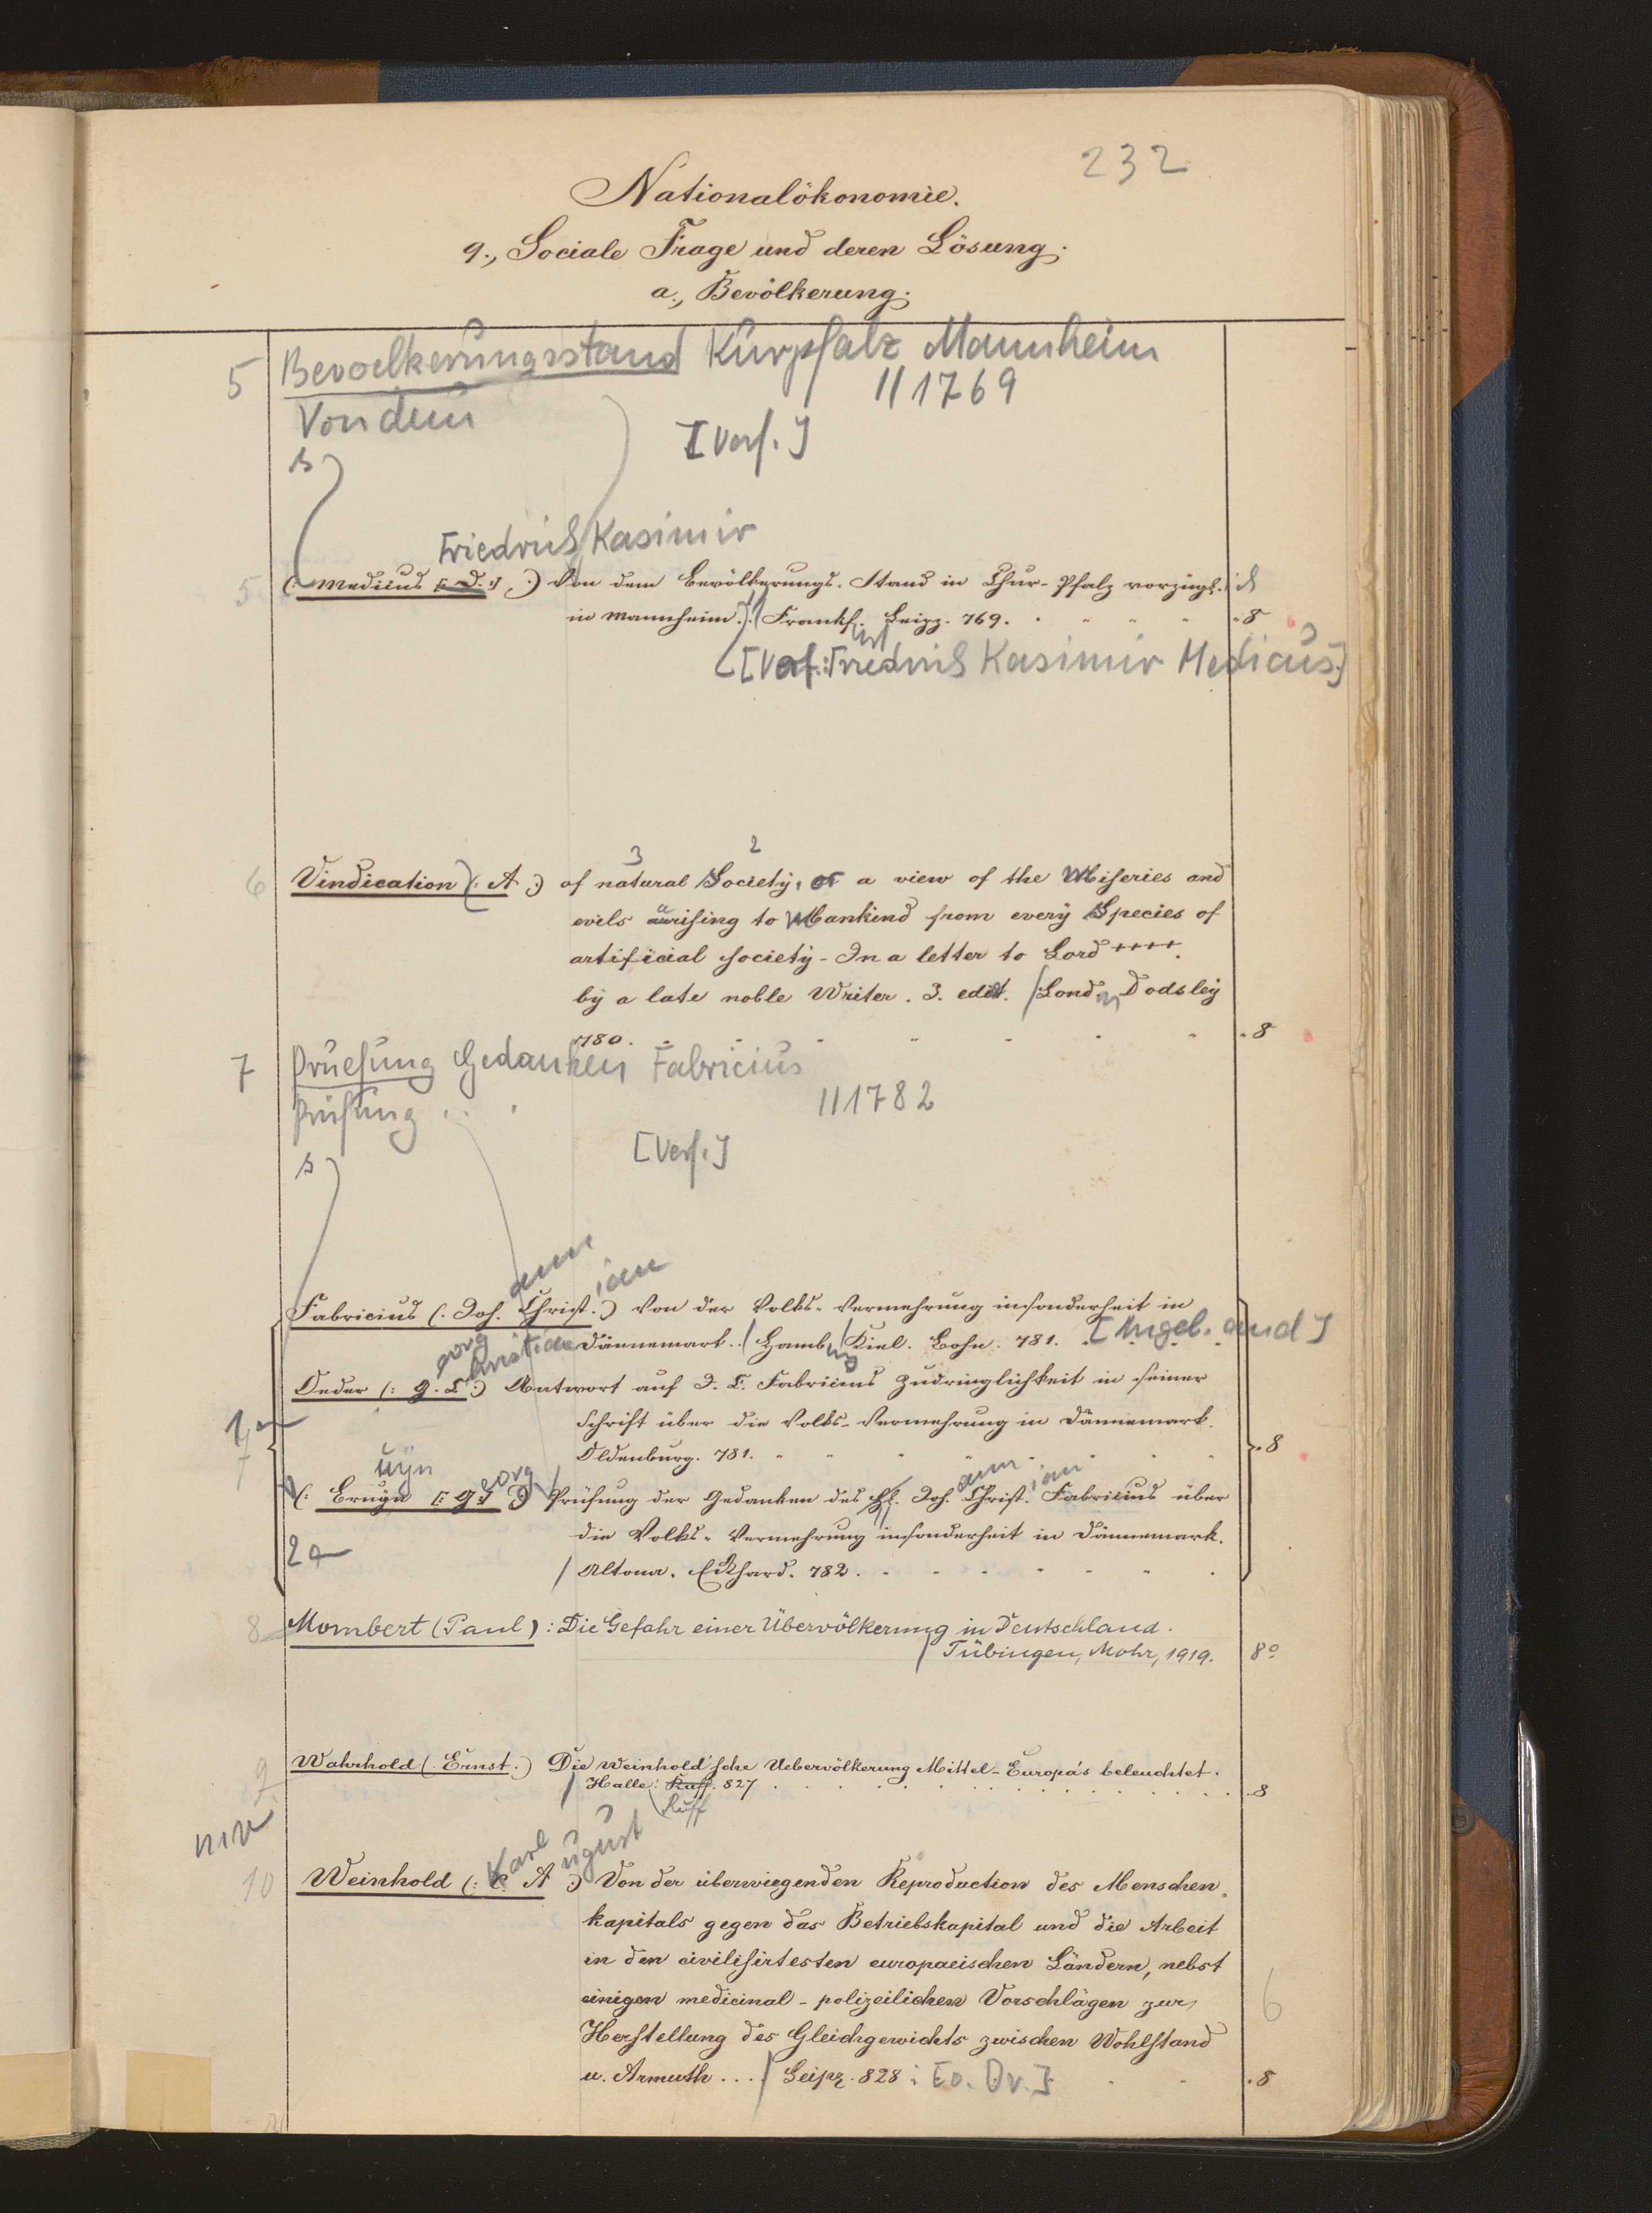 232
Nationalökonomie.
9., Sociale Frage und deren Lösung.
a., Bevölkerung.
5 Bevoelkerungsstand Kurpfalz Mannheim
// 1769
Von dem
[Verf.]
s
Friedrich Kasimir
5 (: Medicus [: D. :] :) Von dem Bevölkerungs-Stand in Chur-Pfalz vorzügl.
in Mannheim. / Frankf. Leipz. 769. 8
[Verf.: Friedrich Kasimir Medicus]
3 2
6 Vindication (: A :) of natural Society, or a view of the Miseries and
evils arising to Mankind from every Species of
artificial society - In a letter to Lord ++++.
by a late noble Writer. 3. edit. / Lond. Dodsley
1780. 8
7 Pruefung Gedanken Fabricius
// 1782
Prüfung . . .
[Verf.]
s
ann ian
Fabricius (: Joh. Christ. :) Von der Volks-Vermehrung insonderheit in
Dännemark. / Hamb. / Kiel. Bohn. 781. [Angeb. and]
eorg hristian
Oeder (: G. C. :) Antwort auf J. C. Fabricius Zudringlichkeit in seiner
Schrift über die Volks-Vermehrung in Dännemark.
Oldenburg. 781. 8
1a
7
uyn eorg ann ian
(: Bruyn [: G :] :) Prüfung der Gedanken des H. Joh. Christ. Fabricius über
die Volks-Vermehrung insonderheit in Dännemark.
2a
/ Altona. Eckhard. 782.
8 Mombert (Paul): Die Gefahr einer Übervölkerung in Deutschland.
/ Tübingen, Mohr, 1919. 8°
9 Wahrhold (: Ernst :) Die Weinhold'sche Uebervölkerung Mittel-Europa's beleuchtet.
/ Halle: Kuff. 827 8
Ruff
Karl ugust
10 Weinhold (: C. A :) Von der überwiegenden Reproduction des Menschen-
kapitals gegen das Betriebskapital und die Arbeit
in den civilisirtesten europaeischen Ländern, nebst
einigen medicinal-polizeilichen Vorschlägen zur
6
Herstellung des Gleichgewichts zwischen Wohlstand
u. Armuth . . . / Leipz. 828: [o. Dr.] 8